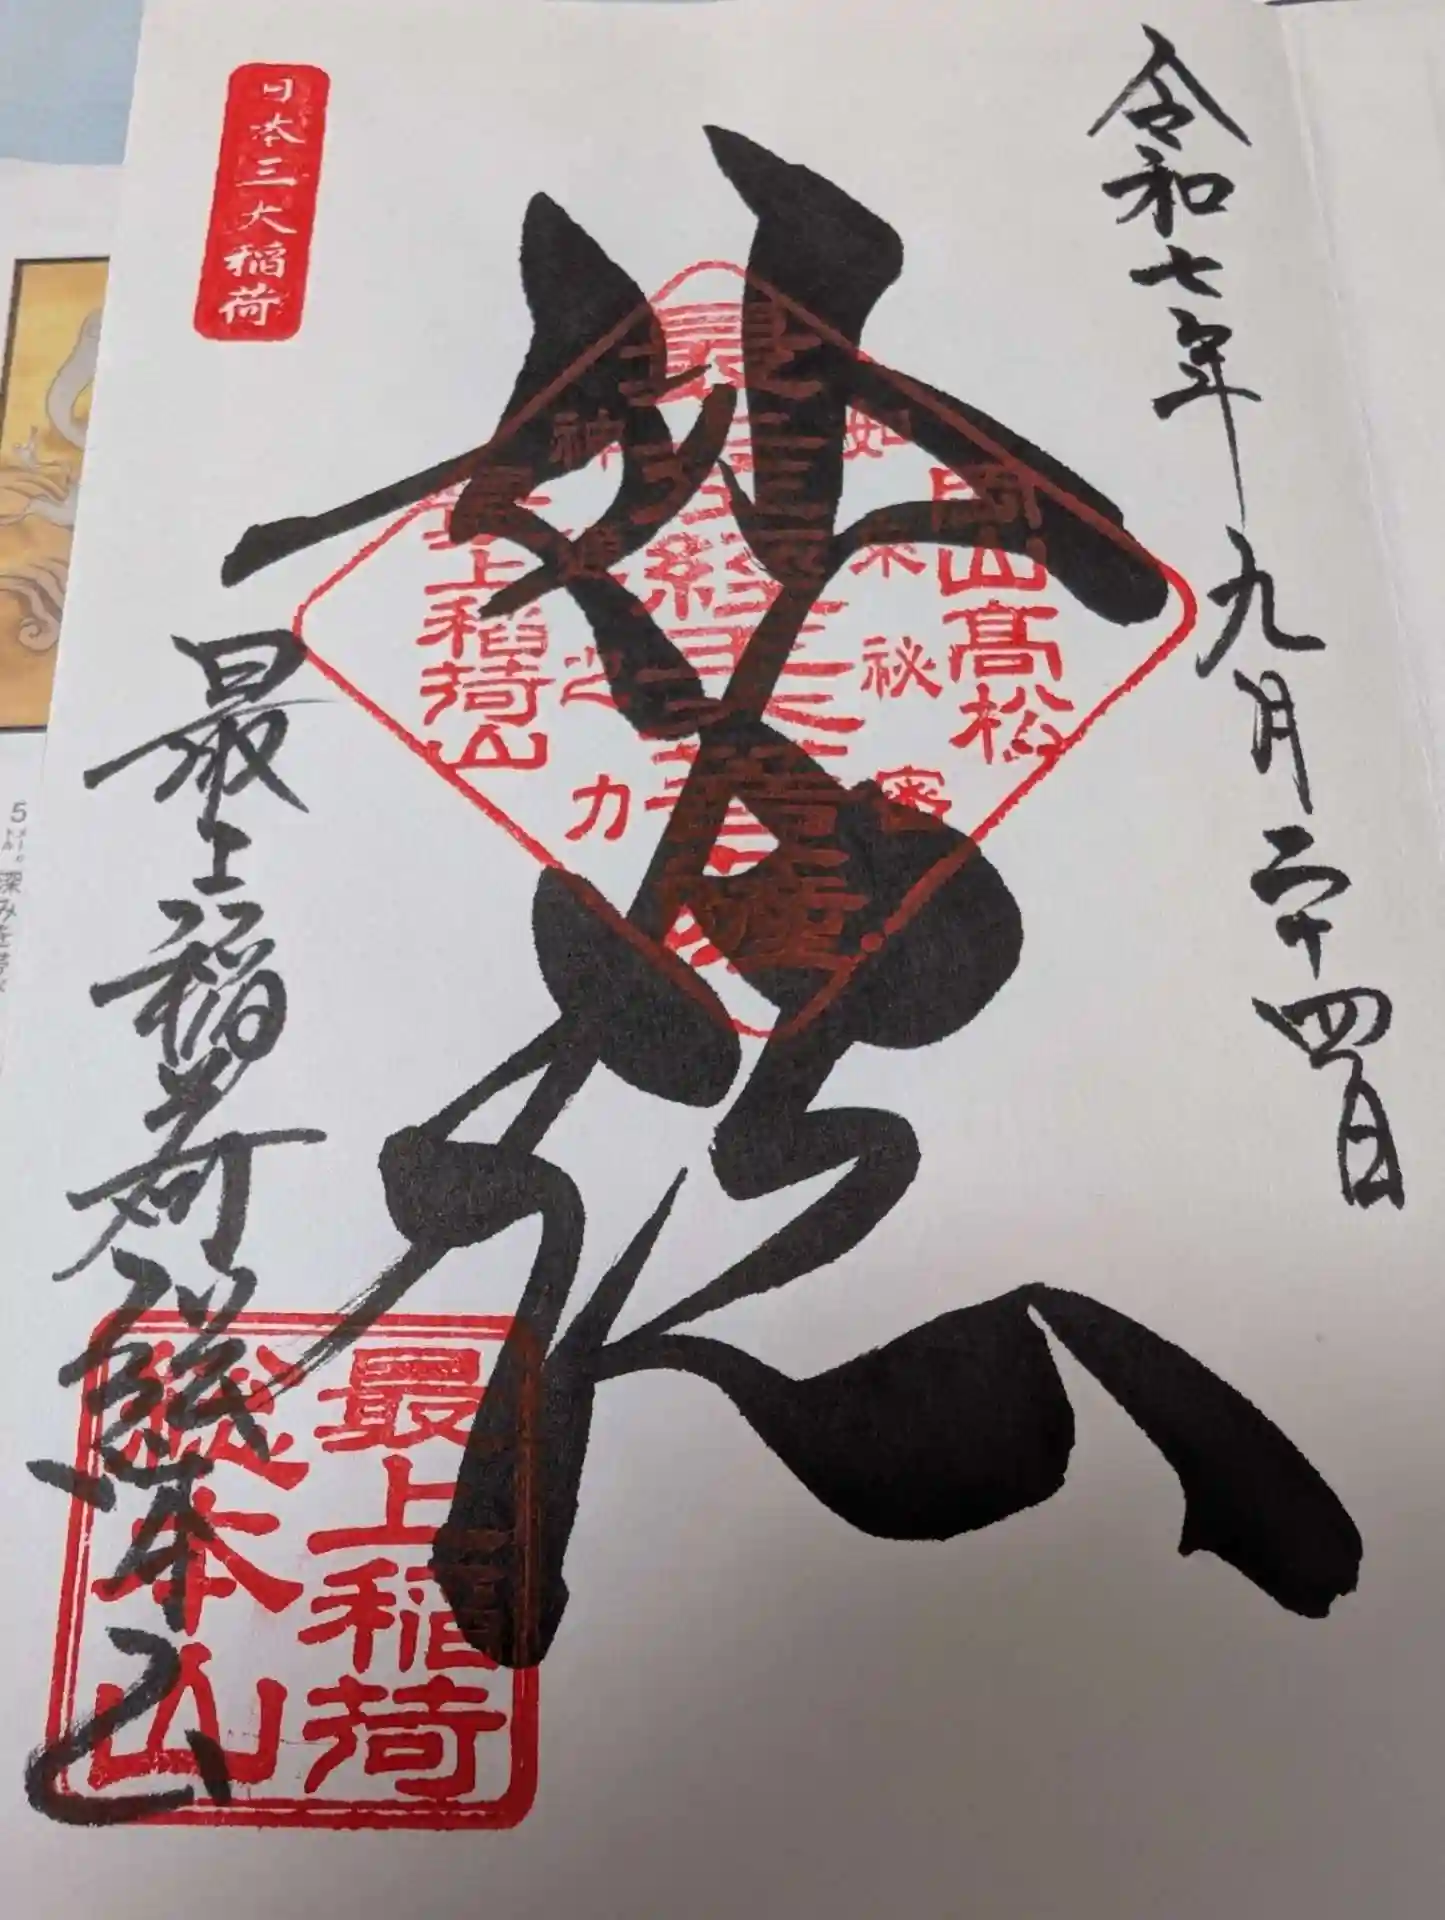 令和七年九月二十四日
妙法
日本三大稲荷
最上稲荷総本山
岡山高松
如来秘密
最上位経王大菩薩
神通之力
最上稲荷山
最上稲荷
総本山
5